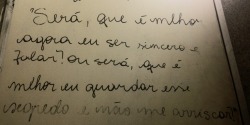 "Será, que é melhor
agora eu ser sincero e
falar? Ou será, que é
melhor eu guardar esse
segredo e não me arriscar?"